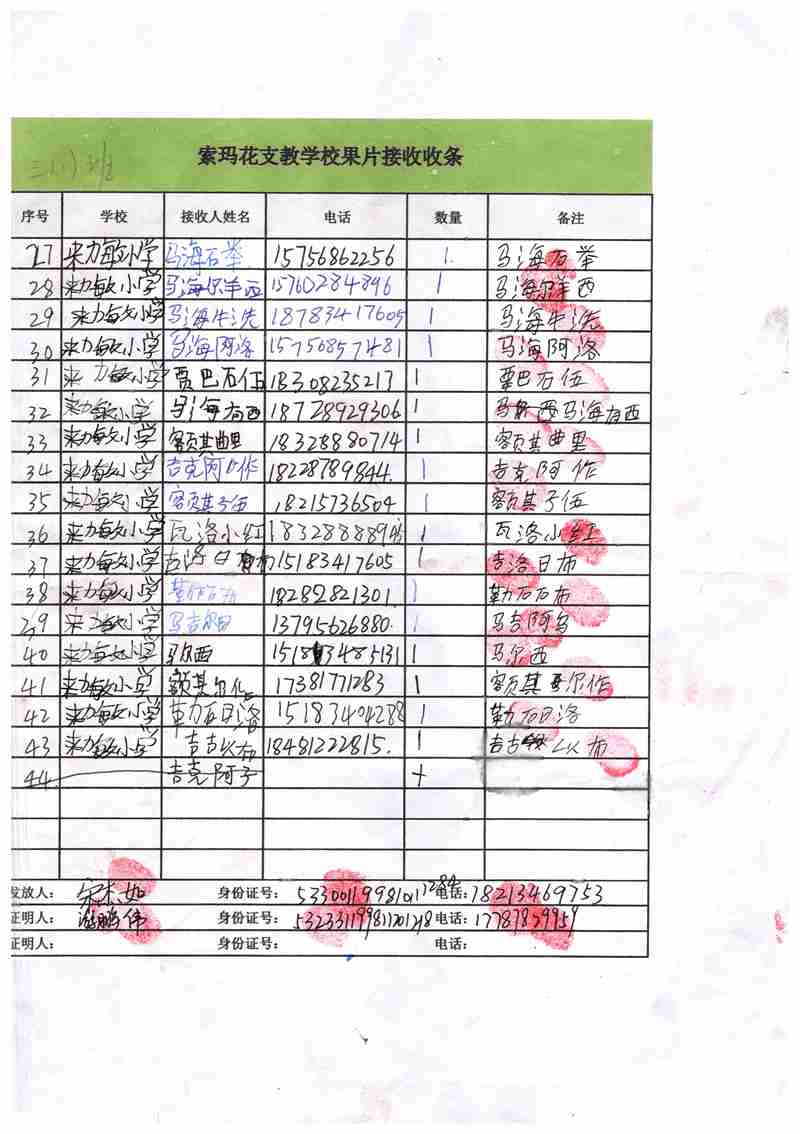 索玛花支教学校果片接收收条
三(1)班
序号 学校 接收人姓名 电话 数量 备注
27 来力敏小学 马海石举 15756862256 1. 马海石举
28 来力敏小学 马海尔羊西 15760284896 1 马海尔羊西
29 来力敏小学 马海牛洗 18783417605 1 马海牛洗
30 来力敏小学 马海阿洛 15756857481 1 马海阿洛
31 来力敏小学 贾巴石伍 18308235217 1 贾巴石伍
32 来力敏小学 马海有西 18728929306 1 马海有西
33 来力敏小学 额其曲里 18328880714 1 额其曲里
34 来力敏小学 吉克阿作 18228789844. 1 吉克阿作
35 来力敏小学 额其子伍 18215736504 1 额其子伍
36 来力敏小学 瓦洛小红 1 瓦洛小红
37 来力敏小学 吉洛日布 15183417605 1 吉洛日布
38 来力敏小学 勒石石布 18282821301. 1 勒石石布
39 来力敏小学 13795626880. 1 马吉阿乌
40 来力敏小学 马尔西 1 马尔西
41 来力敏小学 额其尔作 17381771283 1 额其尔作
42 来力敏小学 勒石日洛 15183404288 1 勒石日洛
43 来力敏小学 吉吉以布 18481222815. 1 吉吉以布
44. 吉克阿子
发放人: 身份证号: 电话:18213469753
证明人: 鹏伟 身份证号: 电话:
证明人: 身份证号: 电话: